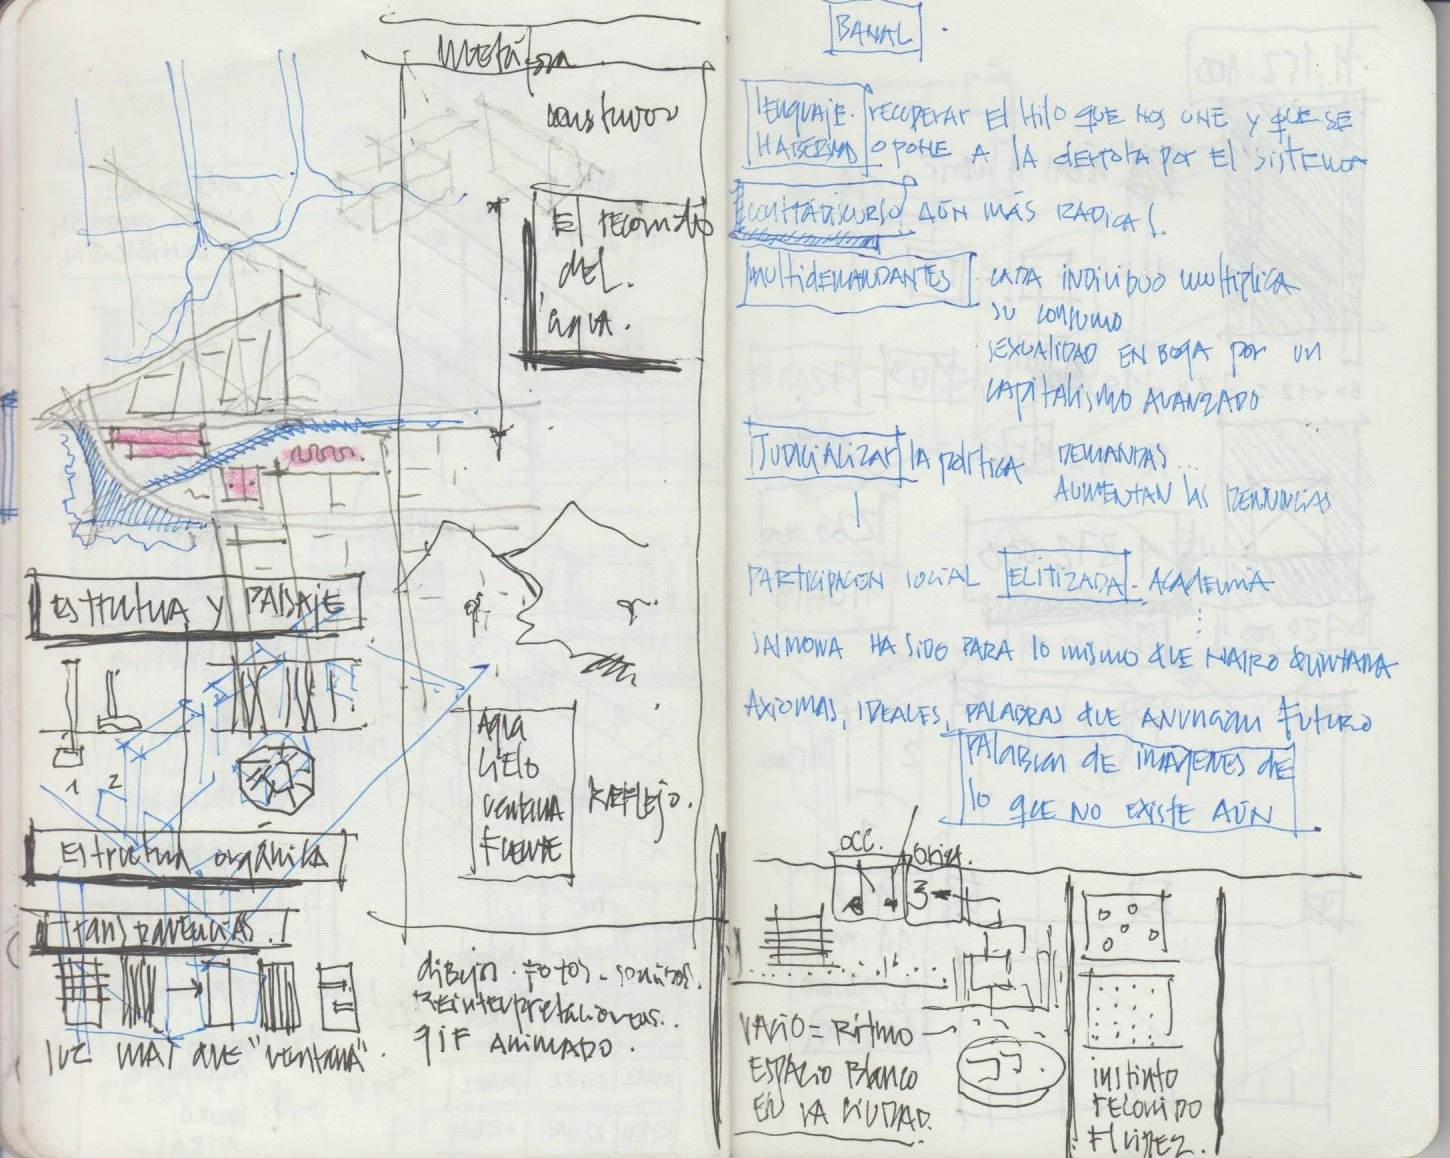 metáfora
construcción
El recorrido
del
agua.
Estructura y PAISAJE
1 2
Estructura orgánica
transparencias.
luz más que "ventana".
Agua
cielo
ventana
FUENTE
REFLEJO.
dibujos. fotos. sonidos.
REinterpretaciones..
gif ANIMADO.
BANAL
lenguaje. recuperar El Hilo que nos une y que se
HABERMAS opone a la derrota por el sistema
contradiscurso AÚN MÁS RADICAL.
multidemandantes CADA INDIVIDUO multiplica
su consumo
SEXUALIDAD EN BOGA por un
CAPITALISMO AVANZADO
JUDICIALIZAR la política DEMANDAS...
AUMENTAN las DENUNCIAS
PARTICIPACIÓN SOCIAL ELITIZADA. ACADEMIA
SALMONA HA SIDO PARA lo mismo QUE NAIRO QUINTANA
AXIOMAS, IDEALES, PALABRAS QUE ANUNCIAN FUTURO
PALABRAS DE IMÁGENES DE
lo que NO EXISTE AÚN
OCC. Orient.
3
VACIO = RITMO
ESPACIO Blanco
EN LA CIUDAD.
instinto
recorrido